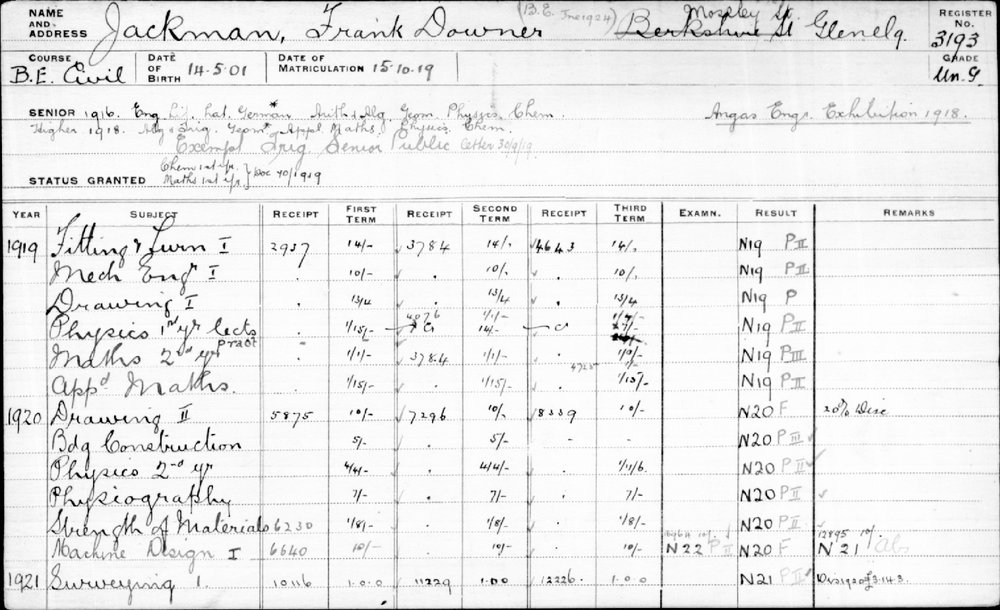 NAME AND ADDRESS Jackman, Frank Downer (B.E. June 1924) Berkshire St Moseley St. Glenelg. REGISTER No. 3193
COURSE B.E. Civil DATE OF BIRTH 14.5.01 DATE OF MATRICULATION 15.10.19 GRADE Un.G
SENIOR 1916. Eng Lit. Lat. German* Arith & Alg Geom Physics, Chem. Angas Engr. Exhibition 1918.
Higher 1918. Alg & Trig. Geom* Appl Maths, Physics, Chem.
Exempt Trig. Senior Public Letter 30/9/19
Chem 1st yr.
STATUS GRANTED Maths 1st yr } Doc 40/1919
YEAR SUBJECT RECEIPT FIRST TERM RECEIPT SECOND TERM RECEIPT THIRD TERM EXAMN. RESULT REMARKS
1919 Fitting & Turn I 2937 14/- 3784 14/- 4643 14/- N19 PII
Mech Engr I . 10/- . 10/- . 10/- N19 PII
Drawing I . 13/4 . 13/4 . 13/4 N19 P
Physics 1st yr lects pract . 1/15/- 4076 1/1/- 14/- N19 PII
Maths 2nd yr . 1/1/- 3784 1/1/- 4725 N19 PIII
Appd Maths. . 1/15/- . 1/15/- . 1/15/- N19 PII
1920 Drawing II 5875 10/- 7296 10/- 8339 10/- N20 F 20% Disc
Bdg Construction 5/- . 5/- - - N20 PIII
Physics 2nd yr . 4/4/- . 4/4/- . 1/11/6 N20 PII
Physiography 7/- . 7/- . 7/- N20 PII
Strength of Materials 6230 1/8/- . 1/8/- . 1/8/- N20 PII
Machine Design I 6640 10/- . 10/- . 10/- 10/- N22 PII N20 F 12895 10/- N'21 Abs
1921 Surveying 1. 10116 1.0.0 11229 1.0.0 12226 1.0.0 N21 PII Div 1920 £3.14.3.